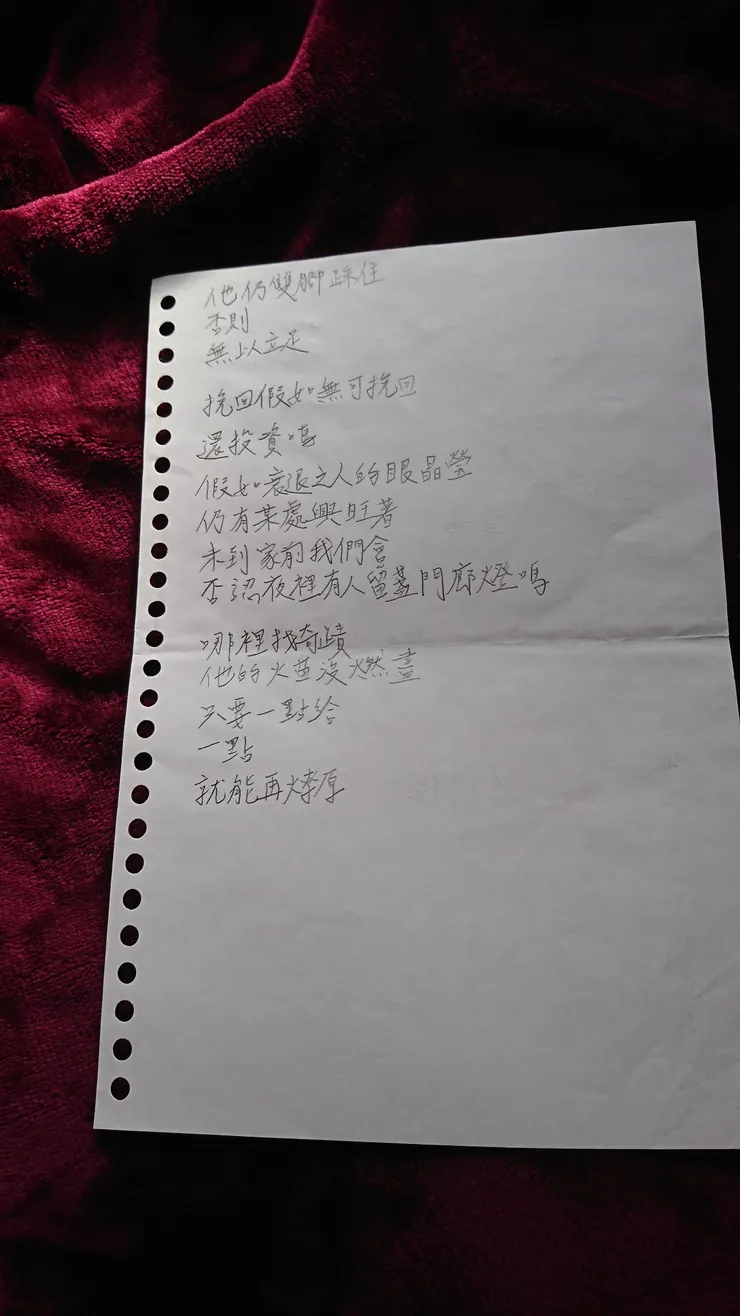 他仍雙腳踩住
否則
無以立足
挽回假如無可挽回
還投資嗎
假如衰退之人的眼晶瑩
仍有某處興旺著
未到家前我們會
否認夜裡有人留盞門廊燈嗎
哪裡找奇蹟
他的火苗沒燃盡
只要一點給
一點
就能再燎原